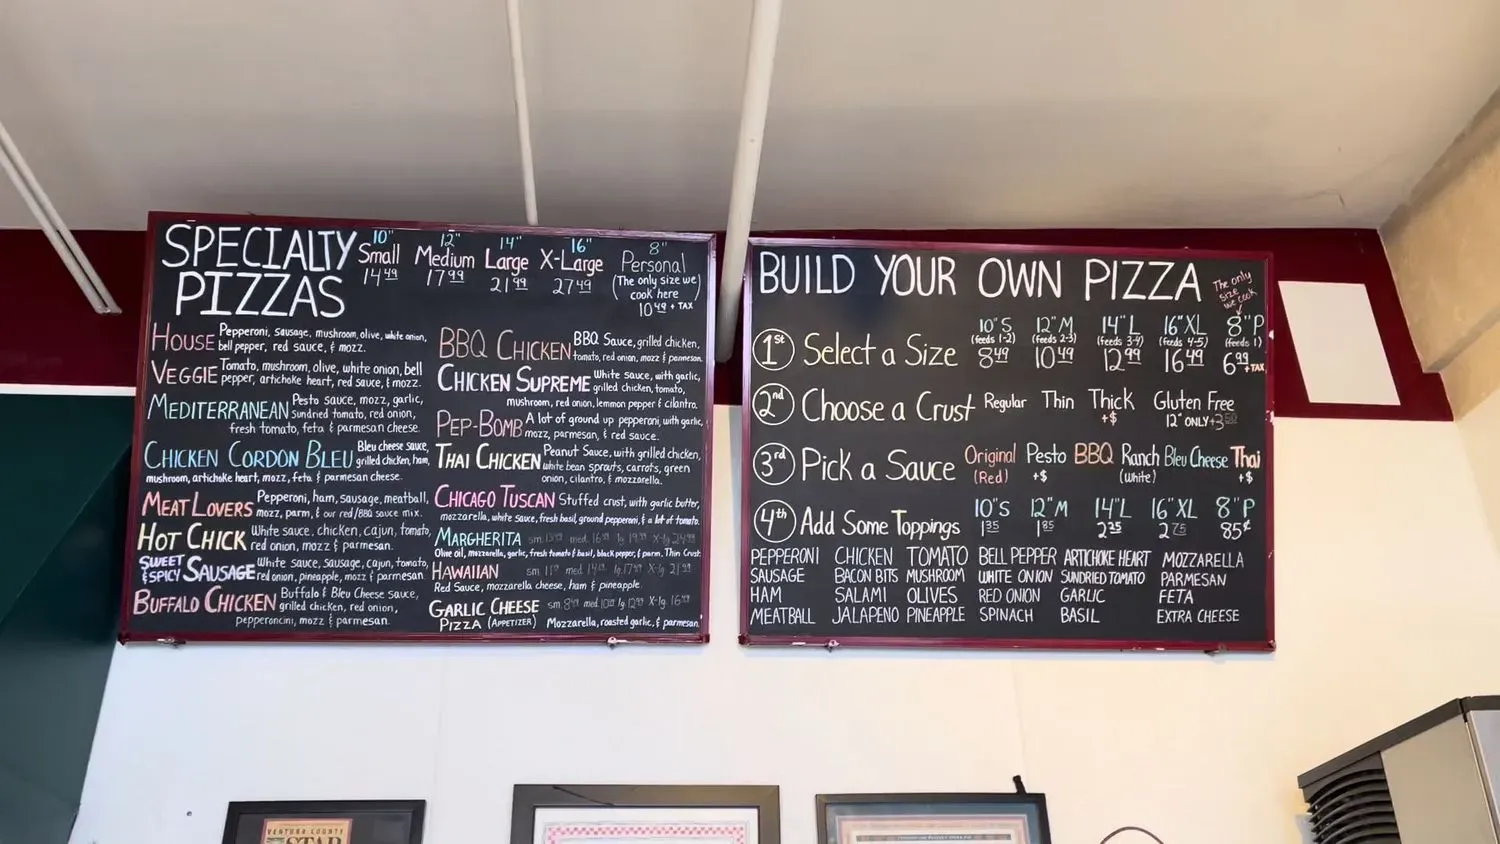 SPECIALTY PIZZAS
10" 12" 14" 16" 8"
Small Medium Large X-Large Personal
14 49 17 99 21 99 27 49
(The only size we
cook here)
10 49 + TAX
HOUSE Pepperoni, sausage, mushroom, olive, white onion,
bell pepper, red sauce, & mozz.
VEGGIE Tomato, mushroom, olive, white onion, bell
pepper, artichoke heart, red sauce, & mozz.
MEDITERRANEAN Pesto sauce, mozz, garlic,
Sundried tomato, red onion,
fresh tomato, feta & parmesan cheese.
CHICKEN CORDON BLEU Bleu cheese sauce,
grilled chicken, ham,
mushroom, artichoke heart, mozz, feta & parmesan cheese.
MEAT LOVERS Pepperoni, ham, sausage, meatball,
mozz, parm, & our red/BBQ sauce mix.
HOT CHICK White sauce, chicken, cajun, tomato,
red onion, mozz & parmesan.
SWEET & SPICY SAUSAGE White sauce, sausage, cajun, tomato,
red onion, pineapple, mozz & parmesan
BUFFALO CHICKEN Buffalo & Bleu Cheese sauce,
grilled chicken, red onion,
pepperoncini, mozz & parmesan.
BBQ CHICKEN BBQ Sauce, grilled chicken,
tomato, red onion, mozz & parmesan
CHICKEN SUPREME White sauce, with garlic,
grilled chicken, tomato,
mushroom, red onion, lemmon pepper & cilantro.
PEP-BOMB A lot of ground up pepperoni, with garlic,
mozz, parmesan, & red sauce.
THAI CHICKEN Peanut Sauce, with grilled chicken,
white bean sprouts, carrots, green
onion, cilantro, & mozzarella.
CHICAGO TUSCAN Stuffed crust, with garlic butter,
mozzarella, white sauce, fresh basil, ground pepperoni, & a lot of tomato.
MARGHERITA sm. med. lg. X-lg
Olive oil, mozzarella, garlic, fresh tomato & basil, black pepper, & parm. Thin Crust
HAWAIIAN sm. med. lg. X-lg
Red Sauce, mozzarella cheese, ham & pineapple.
GARLIC CHEESE sm. 8 49 med. lg. 12 99 X-lg. 16 49
PIZZA (APPETIZER) Mozzarella, roasted garlic, & parmesan.
BUILD YOUR OWN PIZZA
The only
size
we cook
1st Select a Size
10" S 12" M 14" L 16" XL 8" P
(feeds 1-2) (feeds 2-3) (feeds 3-4) (feeds 4-5) (feeds 1)
8 49 10 49 12 99 16 49 6 99 +TAX
2nd Choose a Crust Regular Thin Thick Gluten Free
+$ 12" ONLY +3
3rd Pick a Sauce Original Pesto BBQ Ranch Bleu Cheese Thai
(Red) +$ (white) +$
4th Add Some Toppings
10" S 12" M 14" L 16" XL 8" P
1 35 1 85 2 35 2 75 85¢
PEPPERONI CHICKEN TOMATO BELL PEPPER ARTICHOKE HEART MOZZARELLA
SAUSAGE BACON BITS MUSHROOM WHITE ONION SUNDRIED TOMATO PARMESAN
HAM SALAMI OLIVES RED ONION GARLIC FETA
MEATBALL JALAPENO PINEAPPLE SPINACH BASIL EXTRA CHEESE
VENTURA COUNTY
STAR